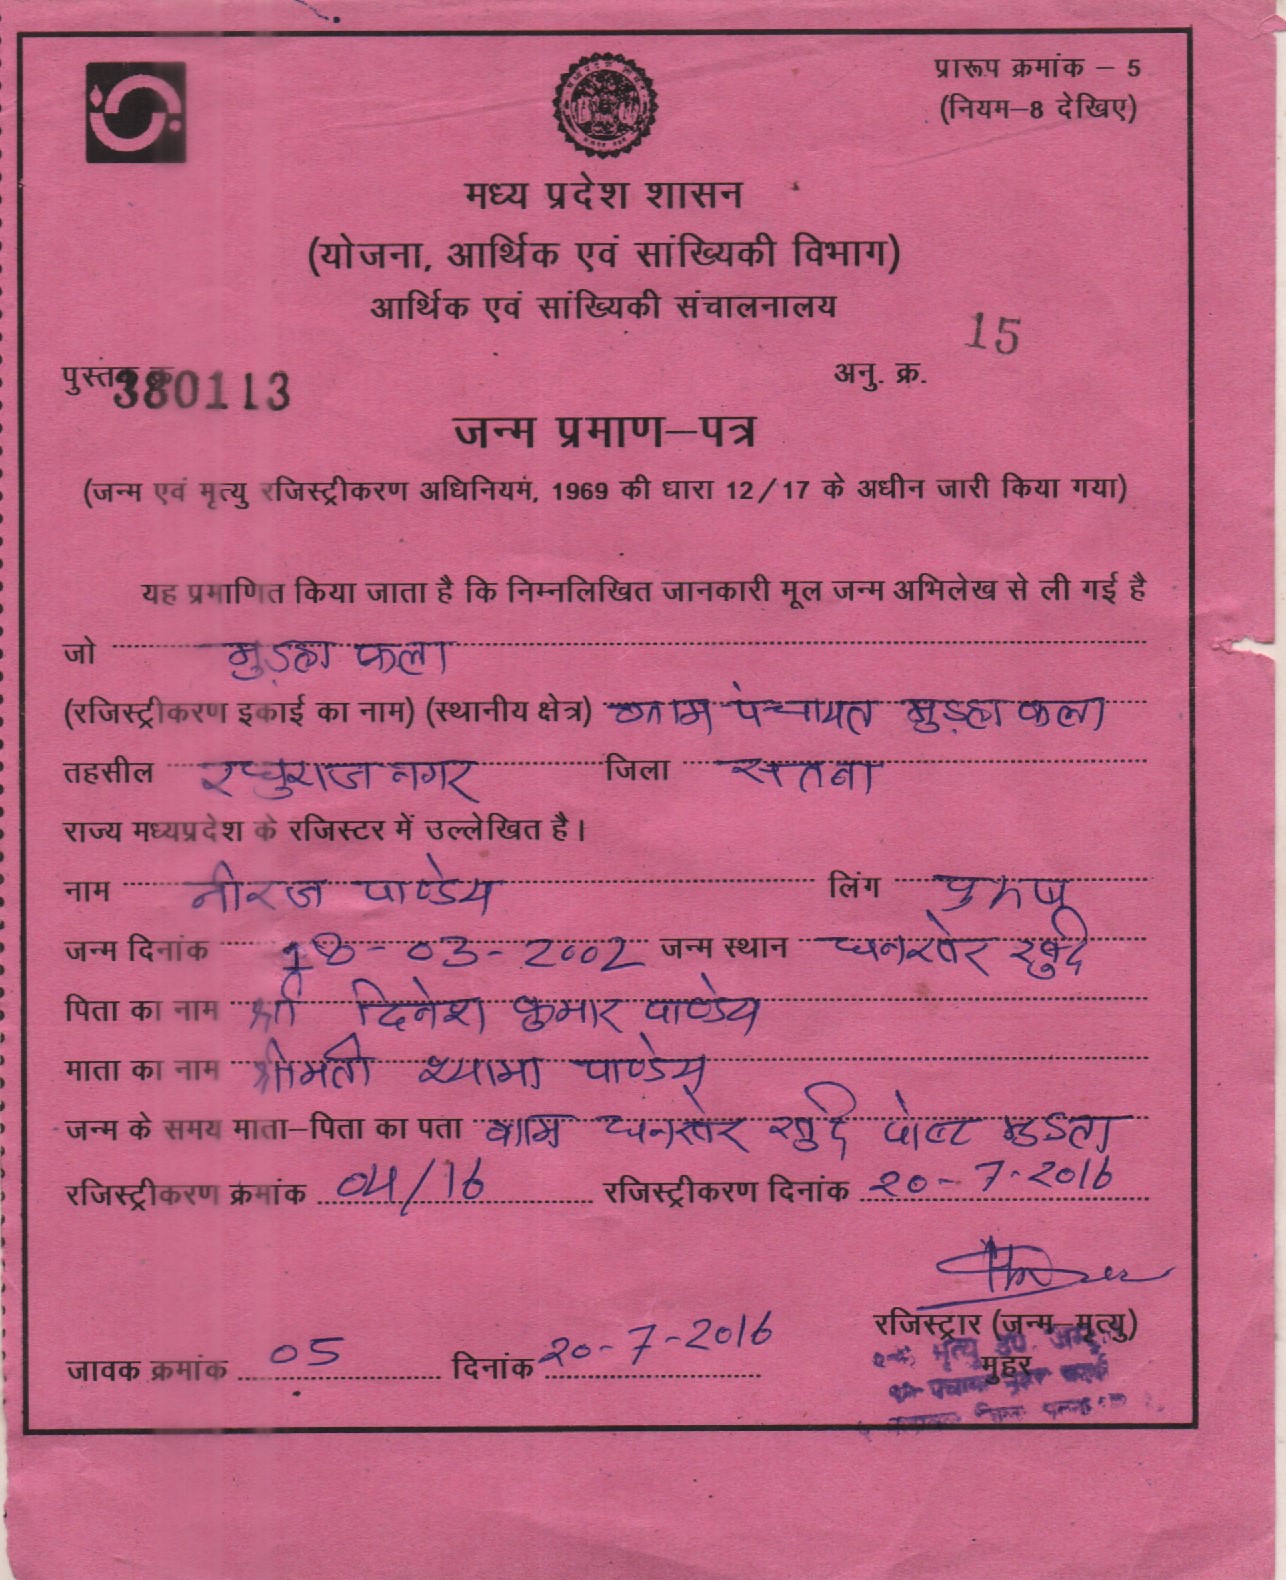 प्रारूप क्रमांक – 5
(नियम–8 देखिए)
मध्य प्रदेश शासन
(योजना, आर्थिक एवं सांख्यिकी विभाग)
आर्थिक एवं सांख्यिकी संचालनालय
15
पुस्तक क्र. 380113 अनु. क्र.
जन्म प्रमाण–पत्र
(जन्म एवं मृत्यु रजिस्ट्रीकरण अधिनियम, 1969 की धारा 12/17 के अधीन जारी किया गया)
यह प्रमाणित किया जाता है कि निम्नलिखित जानकारी मूल जन्म अभिलेख से ली गई है
जो मुड़हा कला
(रजिस्ट्रीकरण इकाई का नाम) (स्थानीय क्षेत्र) ग्राम पंचायत मुड़हा कला
तहसील रघुराज नगर जिला सतना
राज्य मध्यप्रदेश के रजिस्टर में उल्लेखित है।
नाम नीरज पाण्डेय लिंग पुरुष
जन्म दिनांक 18-03-2002 जन्म स्थान खुर्द
पिता का नाम श्री दिनेश कुमार पाण्डेय
माता का नाम श्रीमती श्यामा पाण्डेय
जन्म के समय माता–पिता का पता ग्राम खुर्द पोस्ट मुड़हा
रजिस्ट्रीकरण क्रमांक 04/16 रजिस्ट्रीकरण दिनांक 20-7-2016
रजिस्ट्रार (जन्म–मृत्यु)
जावक क्रमांक 05 दिनांक 20-7-2016 मुहर